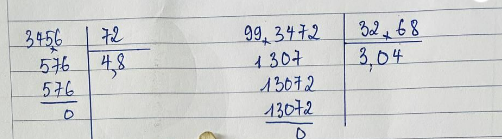 3456 72
576 4,8
576
0
99,3472 32,68
1307 3,04
13072
13072
0